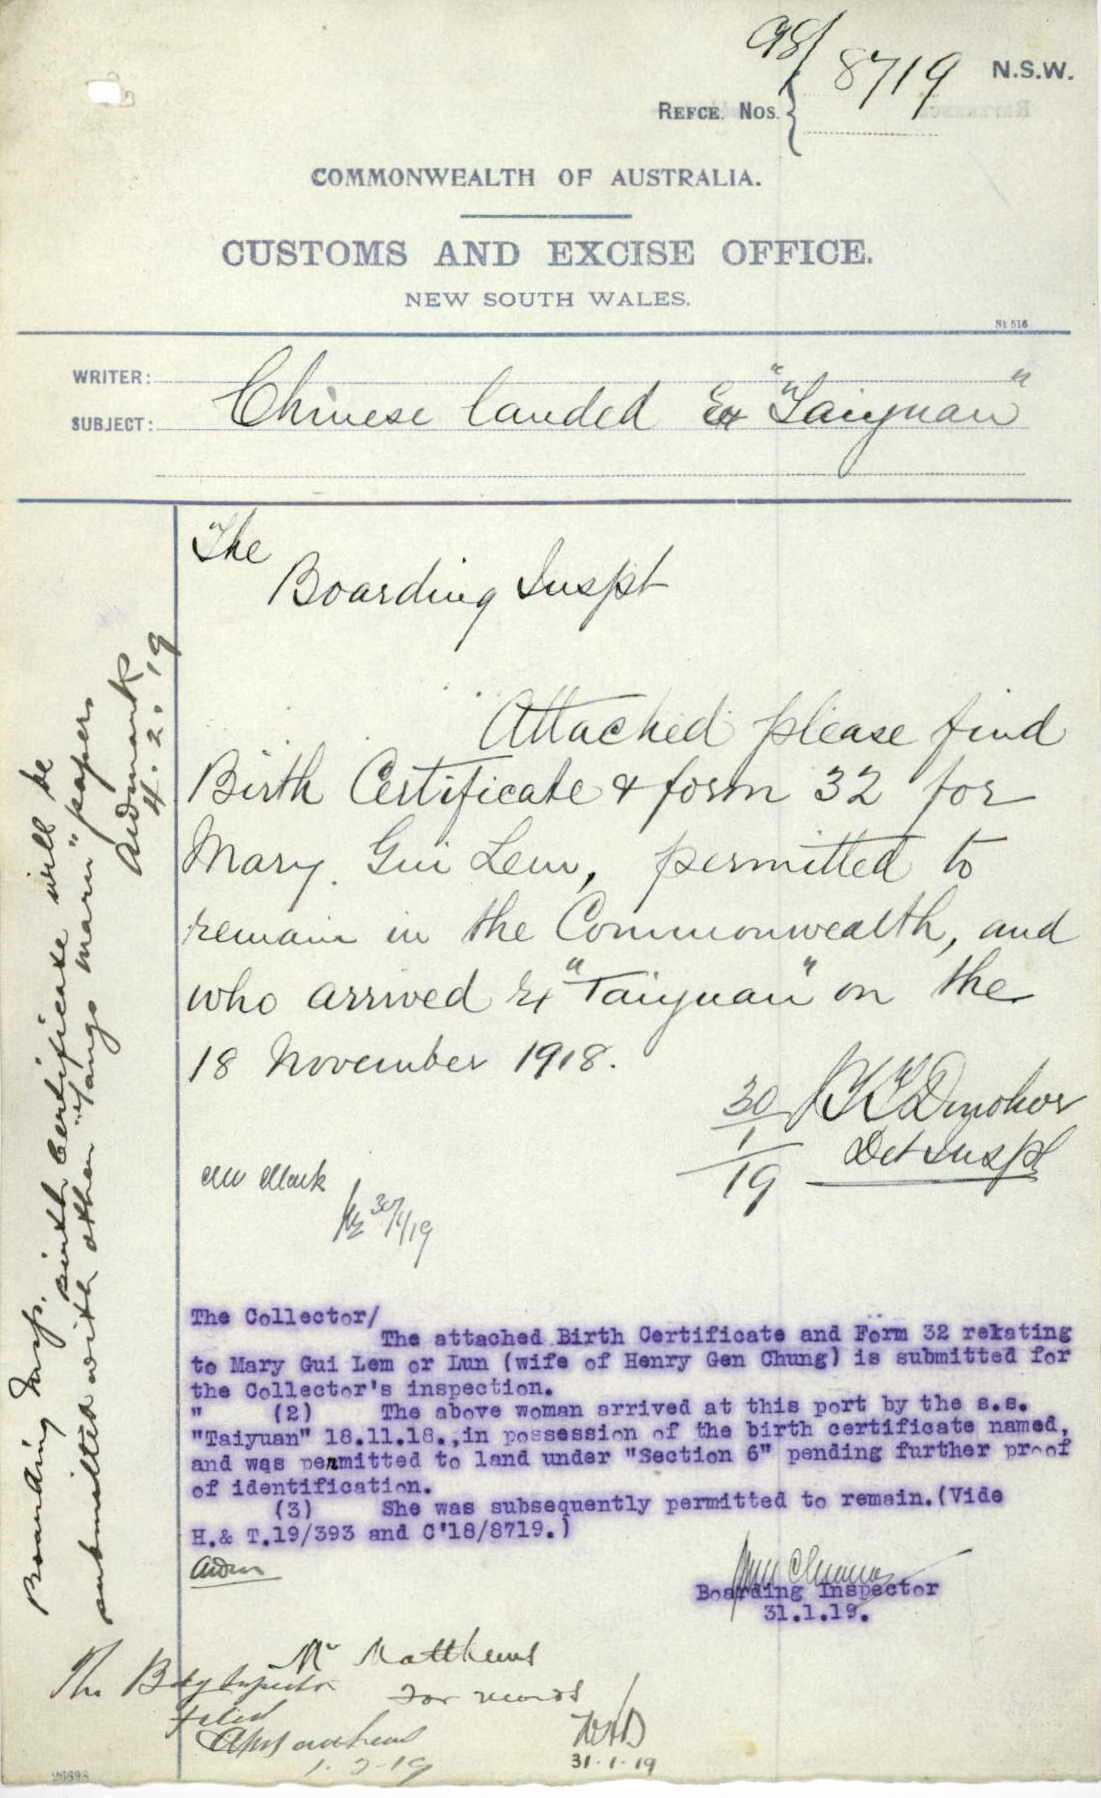 98/8719 N.S.W.
REFCE. NOS.
COMMONWEALTH OF AUSTRALIA.
CUSTOMS AND EXCISE OFFICE.
NEW SOUTH WALES.
St 516
WRITER:
SUBJECT: Chinese landed Ex "Taiyuan"
The
Boarding Inspt
Attached please find
Birth Certificate & form 32 for
Mary Gui Lem, permitted to
remain in the Commonwealth, and
who arrived Ex "Taiyuan" on the
18 November 1918.
30/1/19 Donohoe
Det Inspt
Mr Mark
30/1/19
The Collector/
The attached Birth Certificate and Form 32 rekating
to Mary Gui Lem or Lun (wife of Henry Gen Chung) is submitted for
the Collector's inspection.
" (2) The above woman arrived at this port by the s.s.
"Taiyuan" 18.11.18.,in possession of the birth certificate named,
and was permitted to land under "Section 6" pending further proof
of identification.
(3) She was subsequently permitted to remain.(Vide
H.& T.19/393 and C'18/8719.)
Boarding Inspector
31.1.19.
Mr Matthews
for records
31.1.19
The Bdg Inspector
Filed
1.2.19
Boarding Insp. Birth Certificate will be
submitted with other "Tango Maru" papers
4.2.19